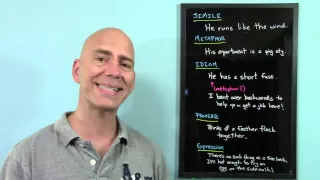 SIMILE
He runs like the wind.
METAPHOR
His apartment is a pig sty.
IDIOM
He has a short fuse.
(metaphor?)
I bent over backwards to
help you get a job here!
PROVERB
Birds of a feather flock
together.
Expression
There's no such thing as a free lunch.
It's hot enough to fry an
egg on the sidewalk!